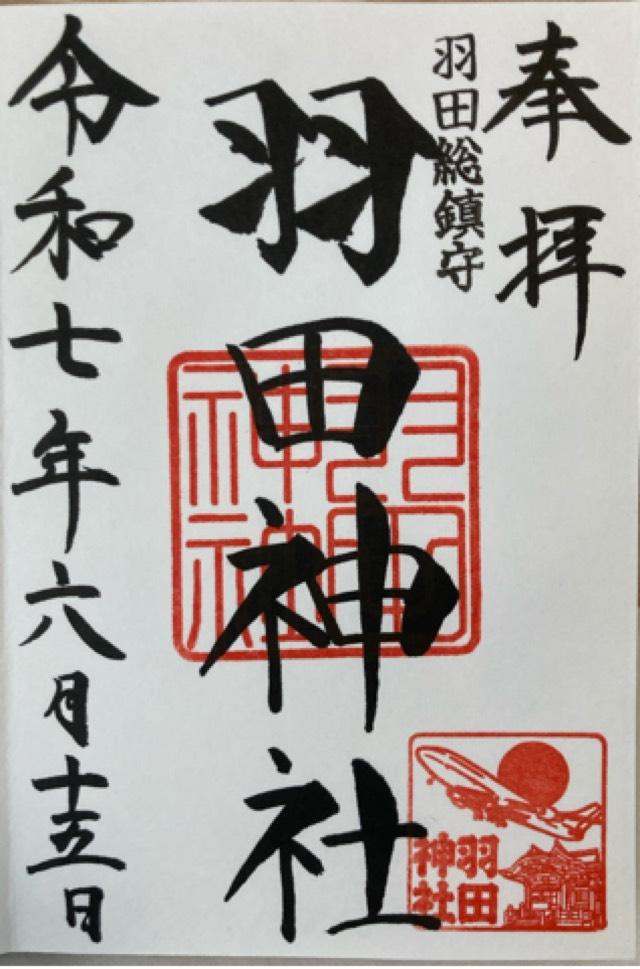 奉拝
羽田総鎮守
羽田神社
羽田神社
令和七年六月十五日
羽田
神社